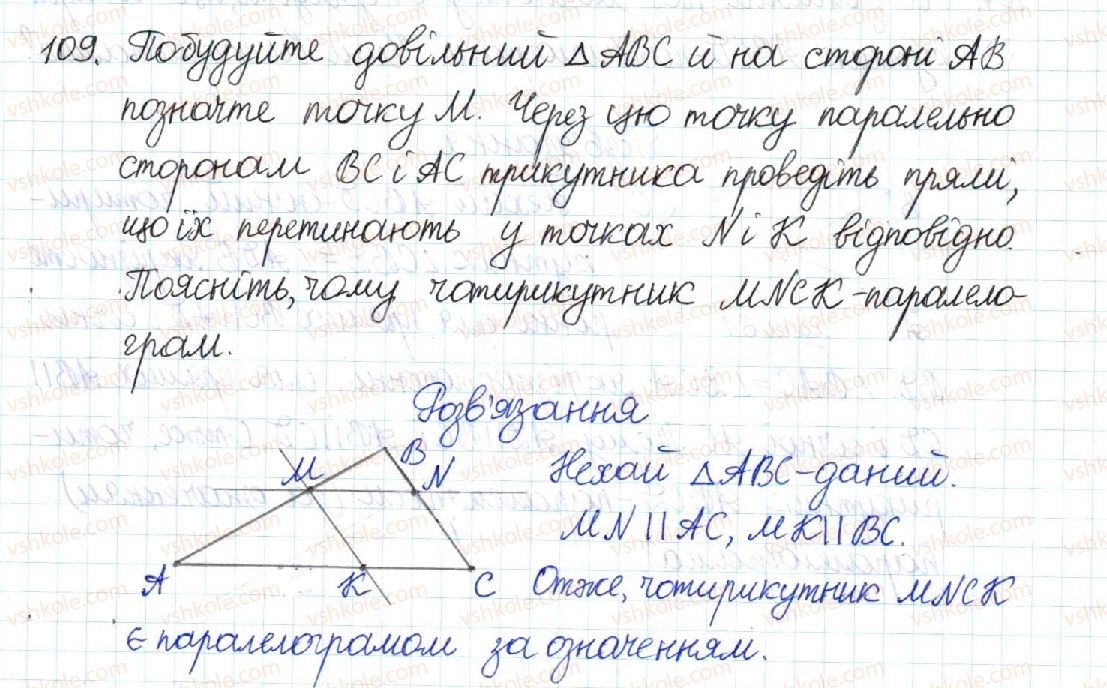 109. Побудуйте довільний △ABC й на стороні AB
позначте точку M. Через цю точку паралельно
сторонам BC і AC трикутника проведіть прямі,
що їх перетинають у точках N і K відповідно.
Поясніть, чому чотирикутник MNCK - паралело-
грам.
Розв'язання
B
M
N
Нехай △ABC - даний.
MN || AC, MK || BC.
A
K
C
Отже, чотирикутник MNCK
є паралелограмом за означенням.